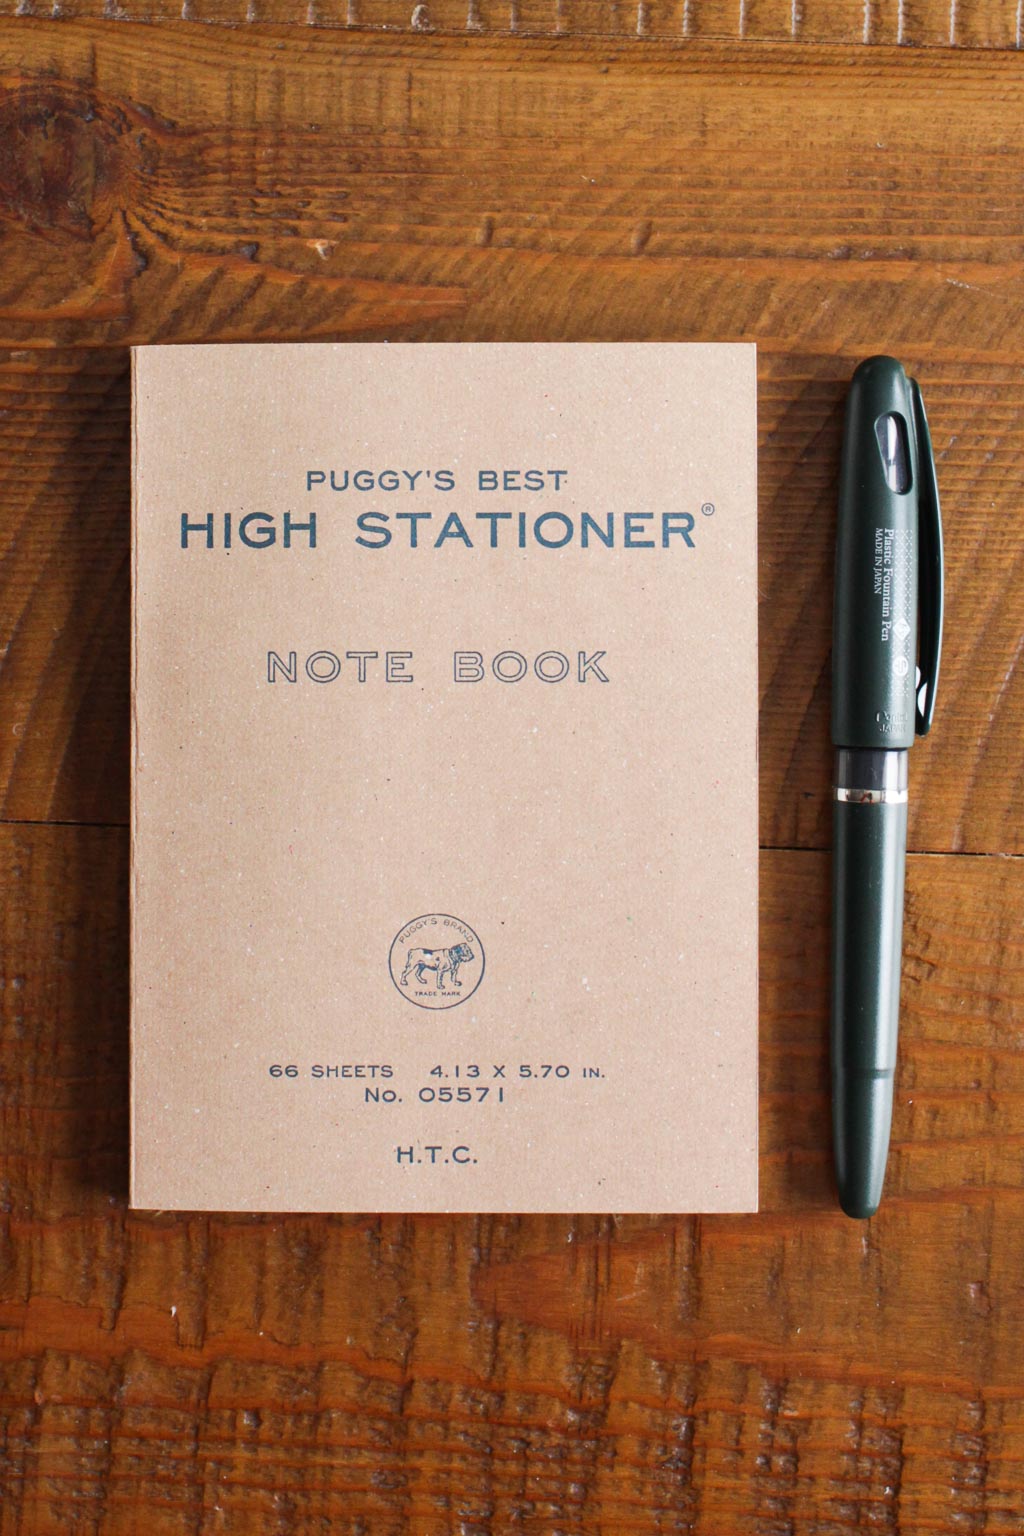 PUGGY'S BEST
HIGH STATIONER®
NOTE BOOK
PUGGY'S BRAND
TRADE MARK
66 SHEETS 4.13 X 5.70 IN.
No. 05571
H.T.C.
Plastic Fountain Pen
MADE IN JAPAN